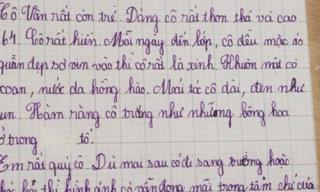 Cô Vân rất còn trẻ. Dáng cô rất thon thả và cao
64. Cô rất hiền. Mỗi ngày đến lớp, cô đều mặc áo
quần đẹp sơ vin vào thì cô rất là xinh. Khuôn mặt cô
xoan, nước da hồng hào. Mái tóc cô dài, đen như
un. Hàm răng cô trắng như những bông hoa
ở trong tổ.
Em rất quý cô. Dù mai sau cô đi sang trường hoặc
thì hình ảnh cô vẫn đọng mãi trong tâm chí của